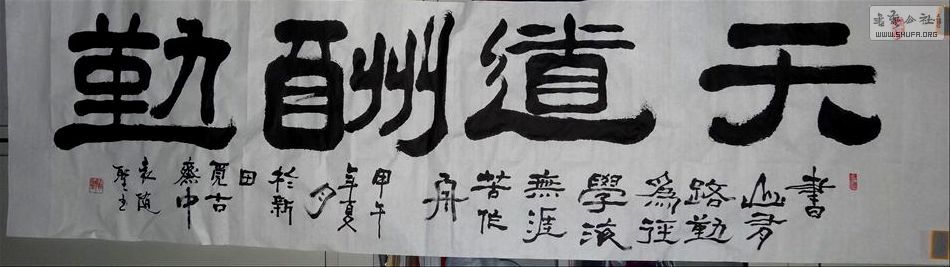 天道酬勤
書山有
路勤
為徑
學海
無涯
苦作
舟
甲午
年夏
月
於新
田
覓古
齋中
袁隨
聖書
書法公社
WWW.SHUFA.ORG